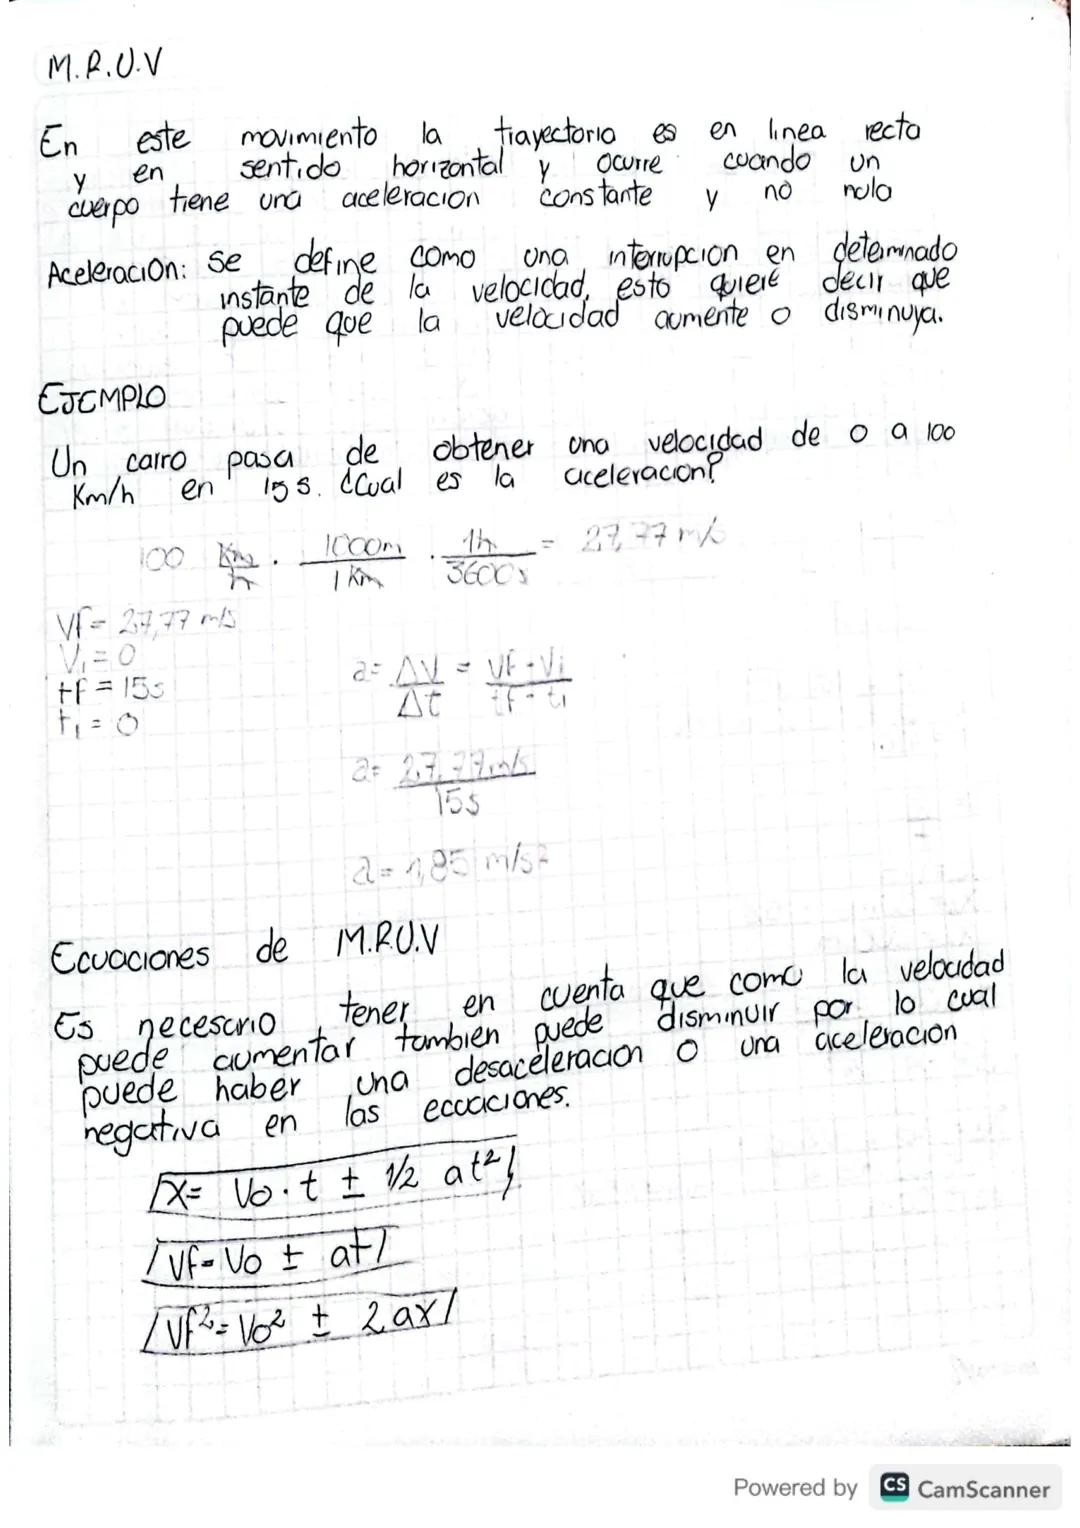 M.R.U.V
En este movimiento la trayectoria es en linea recta
y en sentido horizontal y ocurre cuando un
cuerpo tiene una aceleracion constante y no nula
Aceleracion: se define como una interrupcion en determinado
instante de la velocidad, esto quiere decir que
puede que la velocidad aumente o disminuya.
EJEMPLO
Un carro pasa de obtener una velocidad de 0 a 100
Km/h en 15 s. ¿Cual es la aceleracion?
100 Km/h · 1000m/1 Km · 1h/3600s = 27,77 m/s
Vf= 27,77 m/s
Vi = 0
tf = 15s
ti = 0
a= ΔV/Δt = Vf - Vi/tf - ti
a= 27,77m/s/15s
a= 1,85 m/s²
Ecuaciones de M.R.U.V
Es necesario tener en cuenta que como la velocidad
puede aumentar tambien puede disminuir por lo cual
puede haber una desaceleracion o una aceleracion
negativa en las ecuaciones.
X= Vo·t ± 1/2 at²
Vf= Vo ± at
Vf²= Vo² ± 2ax
Powered by CS CamScanner